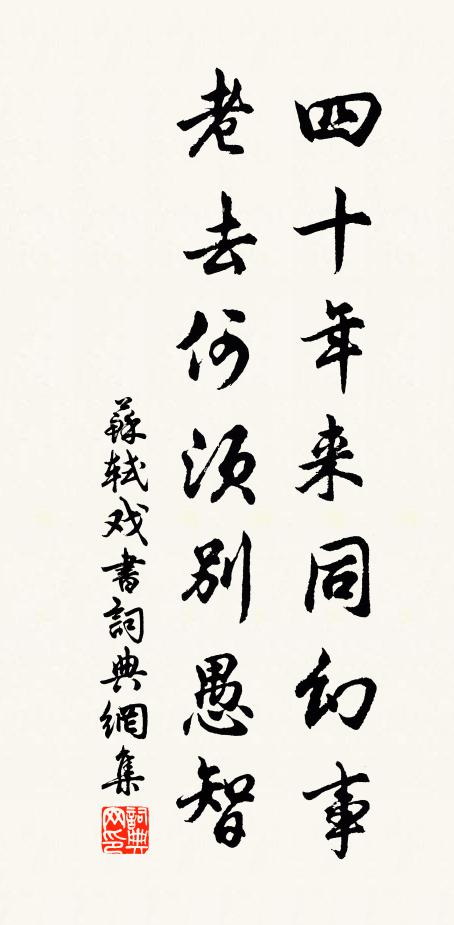 四十年来同幻事
老去何须别愚智
蘇軾戏書詞典網集
詞典网印